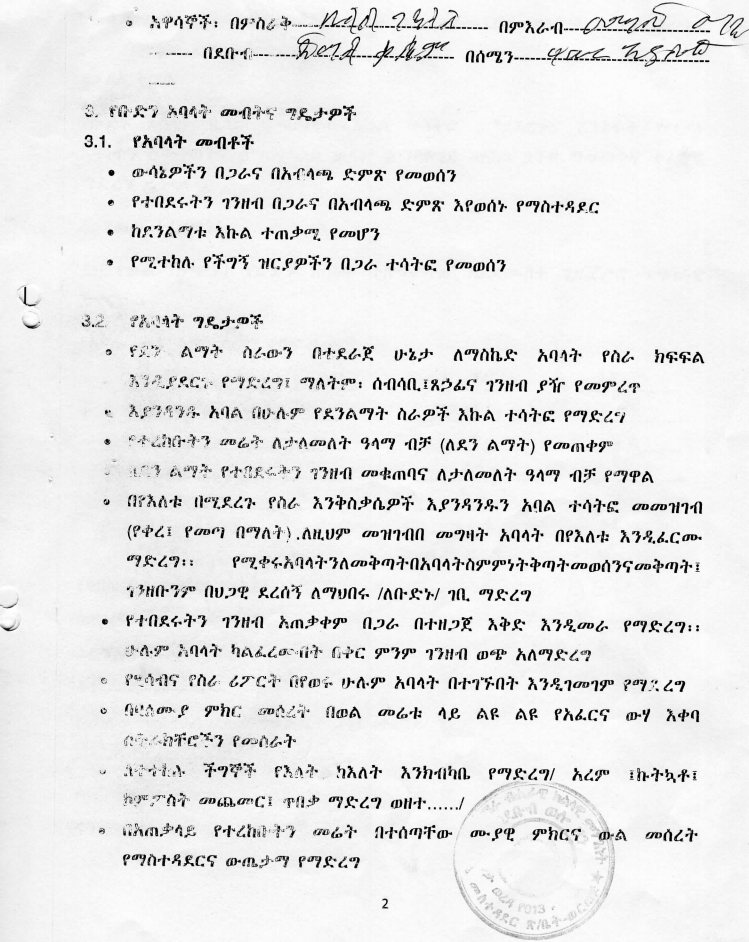 አዋሳኞች፡ በምስራቅ በምእራብ
በደቡብ በሰሜን
3. የቡድን አባላት መብትና ግዴታዎች
3.1. የአባላት መብቶች
• ውሳኔዎችን በጋራና በአብላጫ ድምጽ የመወሰን
• የተበደሩትን ገንዘብ በጋራና በአብላጫ ድምጽ እየወሰኑ የማስተዳደር
• ከደንልማቱ እኩል ተጠቃሚ የመሆን
• የሚተከሉ የችግኝ ዝርያዎችን በጋራ ተሳትፎ የመወሰን
3.2 የአባላት ግዴታዎች
• የደን ልማት ስራውን በተደራጀ ሁኔታ ለማስኬድ አባላት የስራ ክፍፍል
እንዲያደርጉ የማድረግ፤ ማለትም፡ ሰብሳቢ፤ጸኃፊና ገንዘብ ያዥ የመምረጥ
• እያንዳንዱ አባል በሁሉም የደንልማት ስራዎች እኩል ተሳትፎ የማድረግ
• የተረከቡትን መሬት ለታለመለት ዓላማ ብቻ (ለደን ልማት) የመጠቀም
• ለደን ልማት የተበደሩትን ገንዘብ መቁጠባና ለታለመለት ዓላማ ብቻ የማዋል
• በየእለቱ በሚደረጉ የስራ እንቅስቃሴዎች እያንዳንዱን አባል ተሳትፎ መመዝገብ
(የቀረ፤ የመጣ በማለት) .ለዚህም መዝገብበ መግዛት አባላት በየእለቱ እንዲፈርሙ
ማድረግ፡፡ የሚቀሩአባላትንለመቅጣትበአባላትስምምነትቅጣትመወሰንናመቅጣት፤
ገንዘቡንም በህጋዊ ደረሰኝ ለማህበሩ /ለቡድኑ/ ገቢ ማድረግ
• የተበደሩትን ገንዘብ አጠቃቀም በጋራ በተዘጋጀ እቅድ እንዲመራ የማድረግ፡፡
ሁሉም አባላት ካልፈረሙበት በቀር ምንም ገንዘብ ወጭ አለማድረግ
• የሂሳብና የስራ ሪፖርት በየወሩ ሁሉም አባላት በተገኙበት እንዲገመገም የማድረግ
• በባለሙያ ምክር መሰረት በወል መሬቱ ላይ ልዩ ልዩ የአፈርና ውሃ እቀባ
ስትራክቸሮችን የመስራት
• ለተተከሉ ችግኞች የእለት ከእለት እንክብካቤ የማድረግ/ አረም ፤ኩትኳቶ፤
ኮምፖስት መጨመር፤ ጥበቃ ማድረግ ወዘተ....../
• በአጠቃላይ የተረከቡትን መሬት በተሰጣቸው ሙያዊ ምክርና ውል መሰረት
የማስተዳደርና ውጤታማ የማድረግ
2